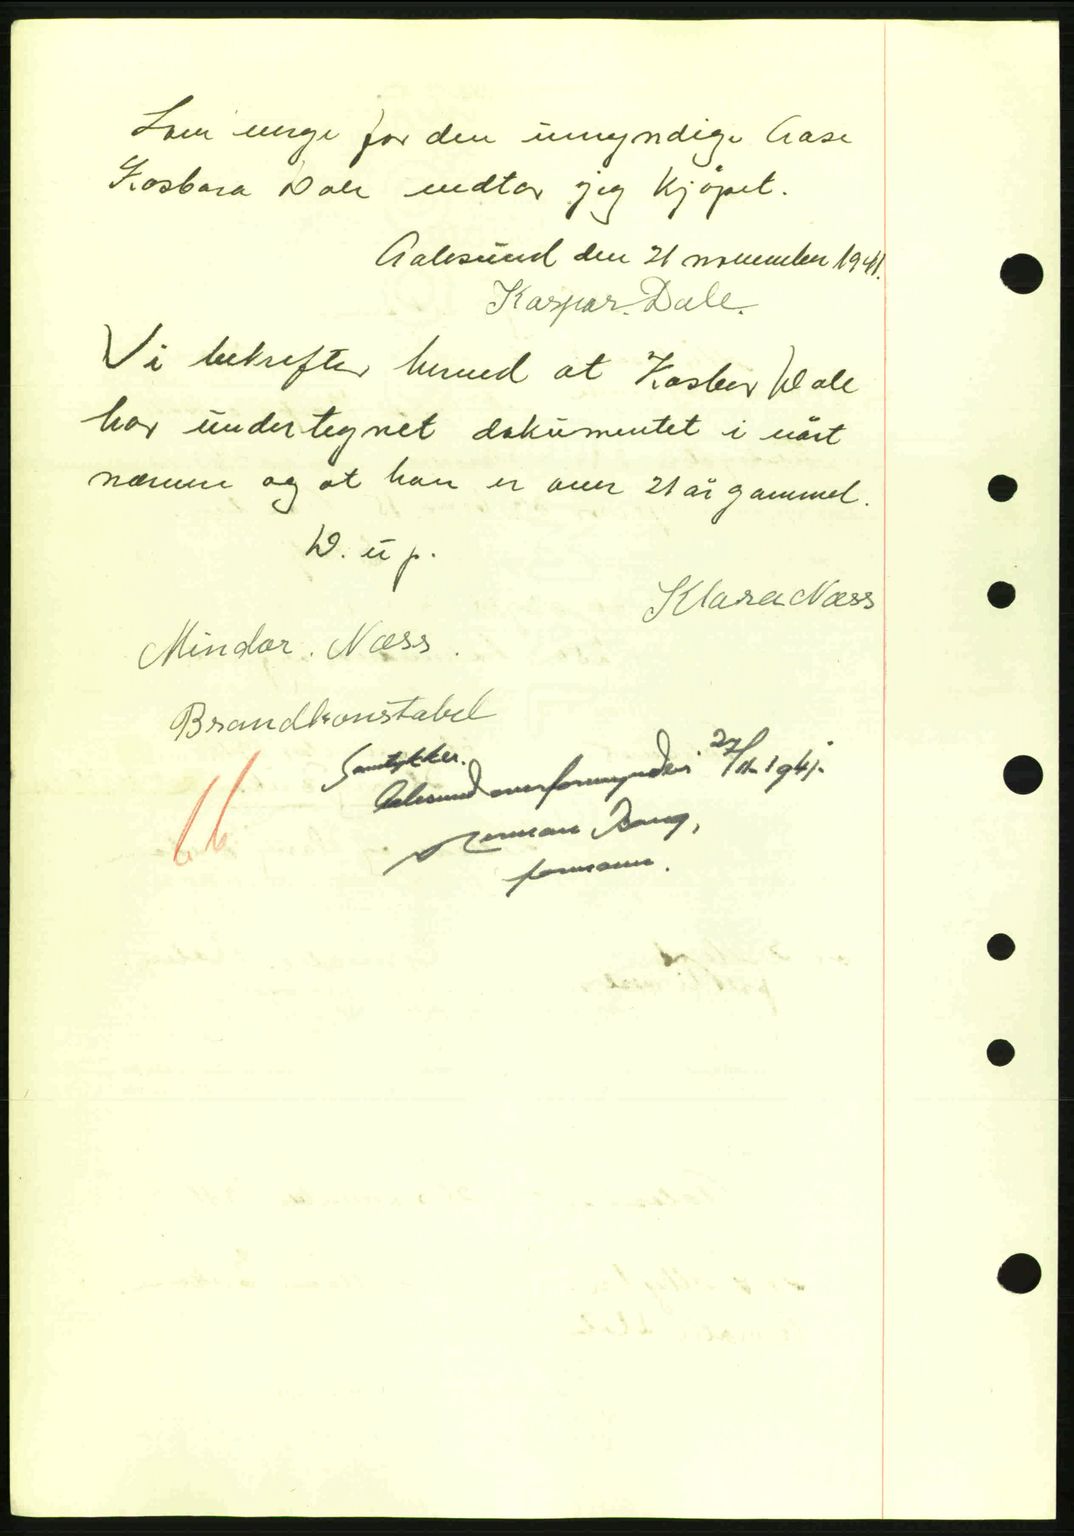 Som verge for den umyndige Aase
Kasbara Dale vedtar jeg kjøpet.
Aalesund den 21 november 1941.
Kaspar. Dale.
Vi bekrefter herved at Kasber Dale
har undertegnet dokumentet i vårt
nærvær og at han er over 21 år gammel.
D. u p.
Klara Næss
Mindor. Næss.
Brandkonstabel
Samtykker.
Aalesund overformynderi 27/11-1941.
Herman Bang,
formann.